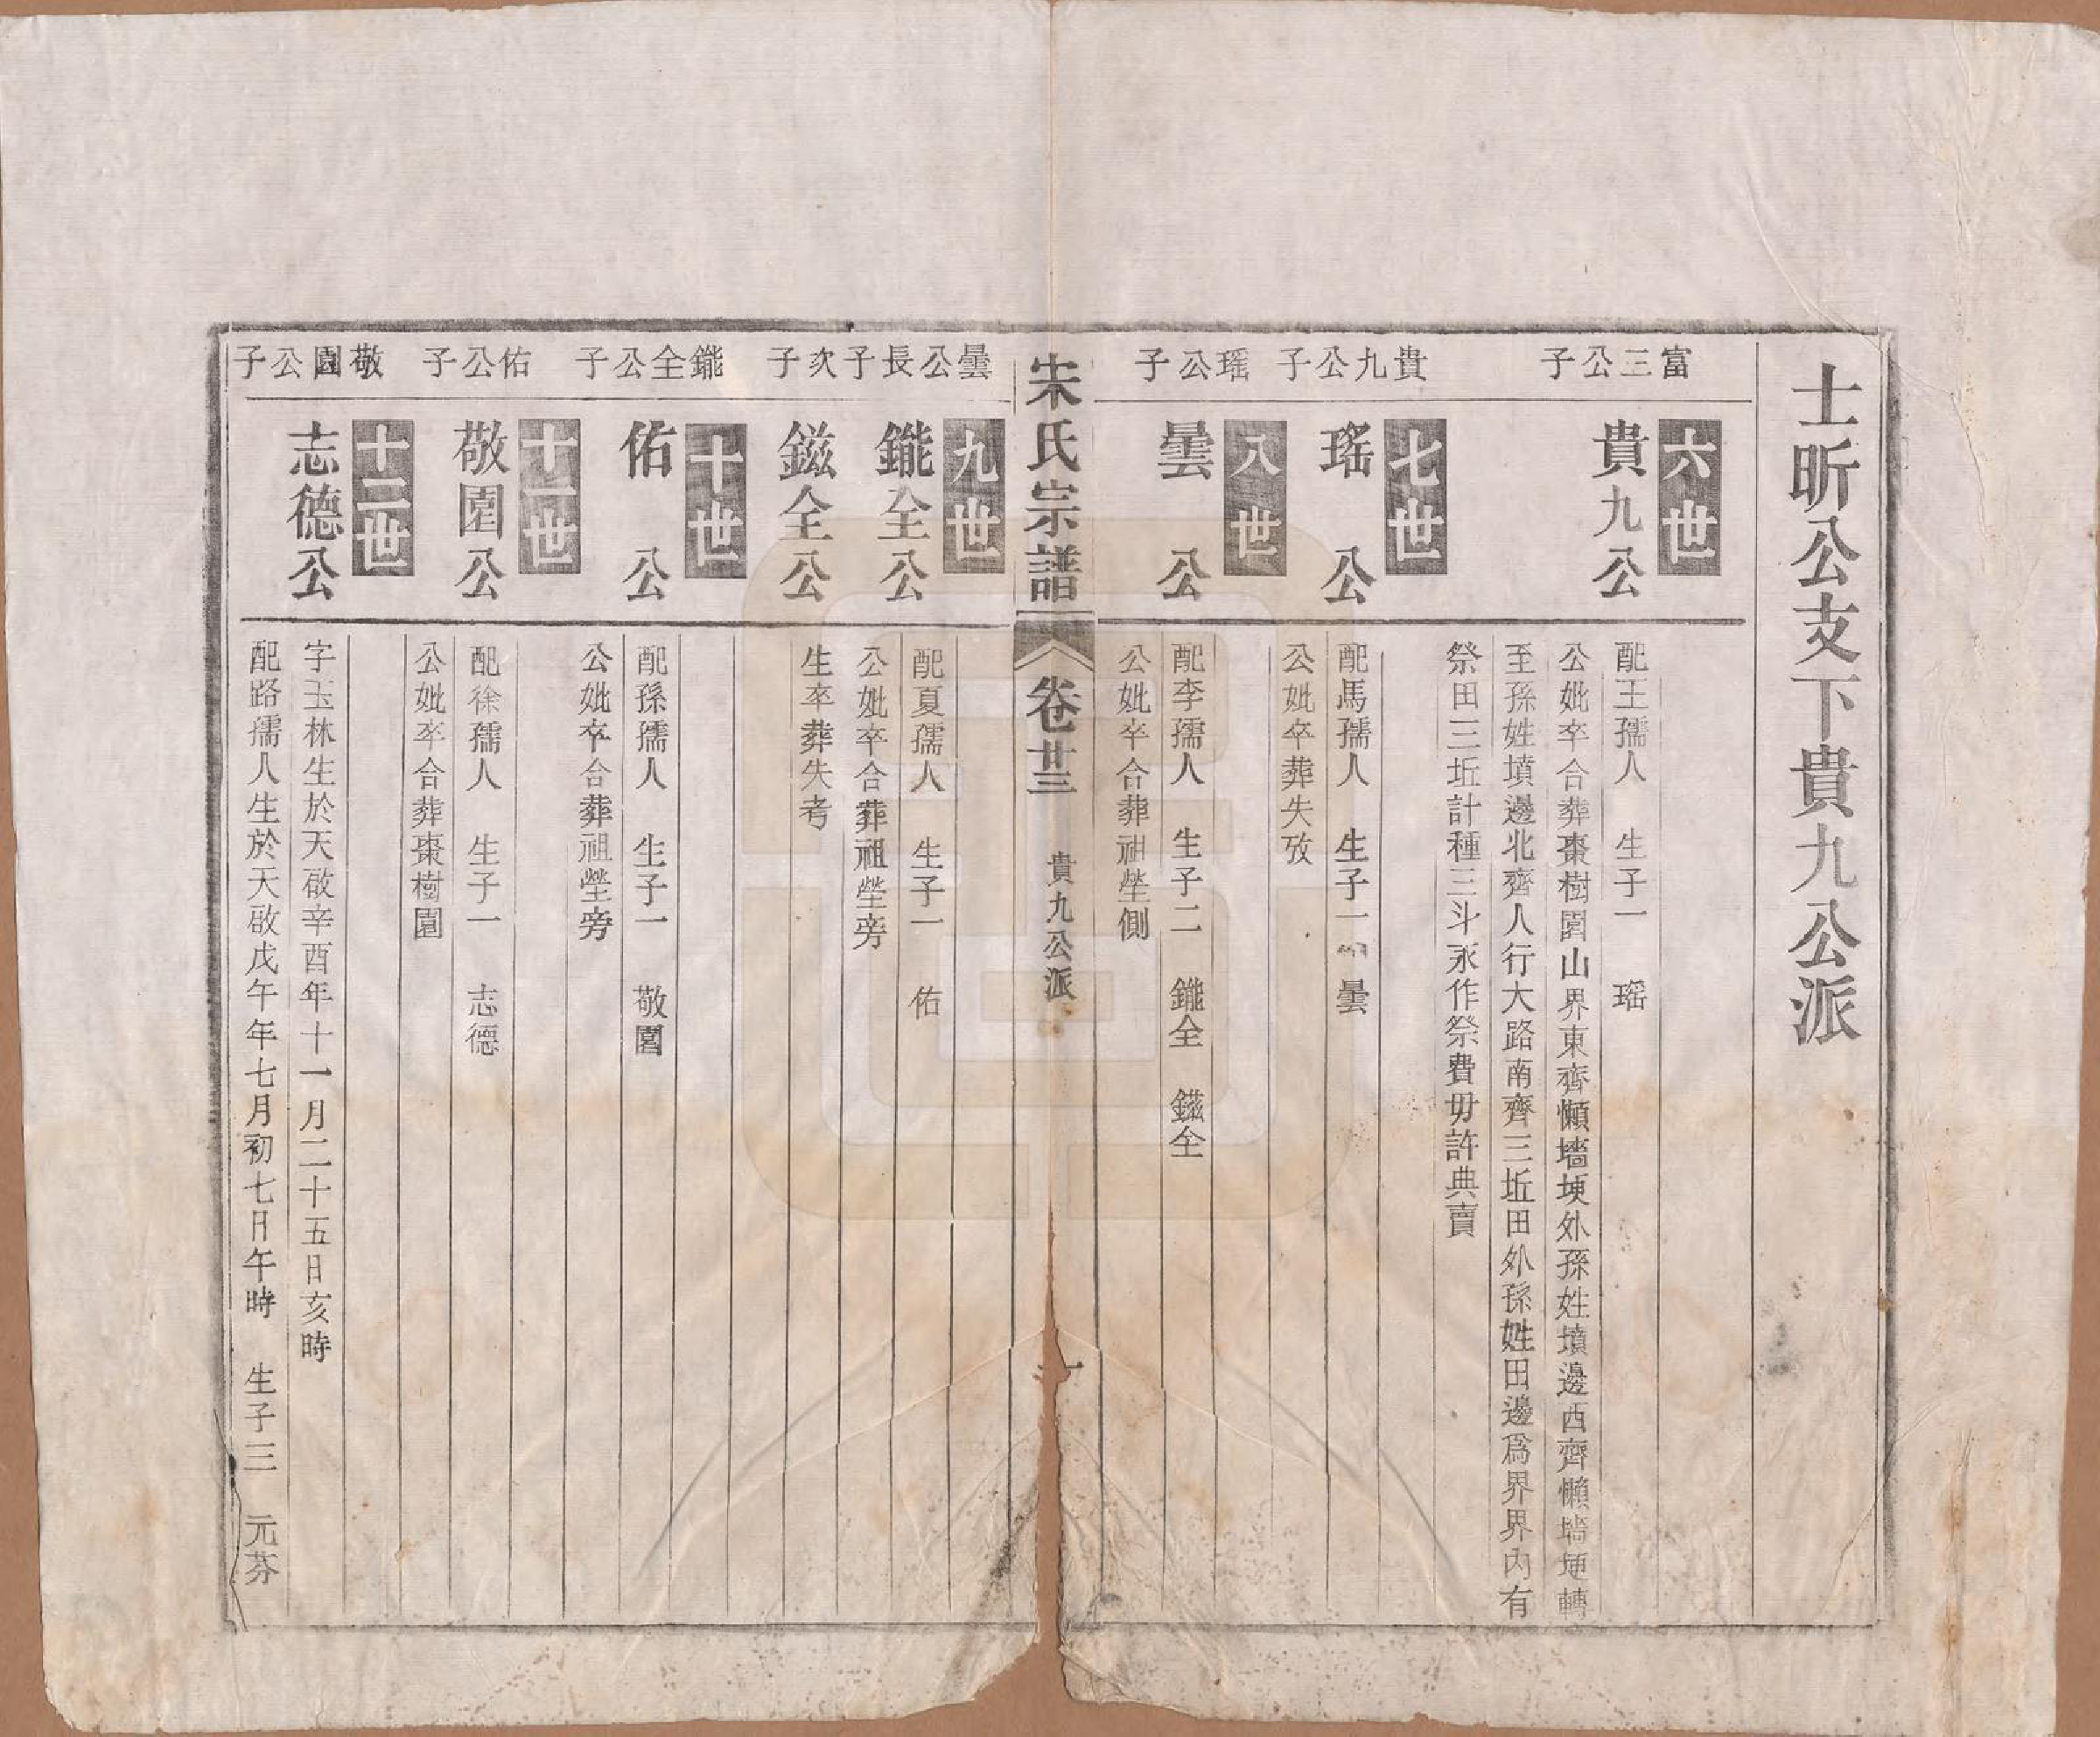 士昕公支下貴九公派
富三公子
六世
貴九公
配王孺人　生子一　瑶
公妣卒合葬棗樹園山界東齊懶墻埂外孫姓墳邊西齊懶墻埂轉
至孫姓墳邊北齊人行大路南齊三坵田外孫姓田邊爲界界内有
祭田三坵計種三斗永作祭費毋許典賣
貴九公子
七世
瑤　公
配馬孺人　生子一　曇
公妣卒葬失攷
瑶公子
八世
曇　公
配李孺人　生子二　鑨全　鎡全
公妣卒合葬祖塋側
宋氏宗譜
卷廿三
貴九公派
一
曇公長子次子
九世
鑨全公
配夏孺人　生子一　佑
公妣卒合葬祖塋旁
鎡全公
生卒葬失考
鑨全公子
十世
佑　公
配孫孺人　生子一　敬園
公妣卒合葬祖塋旁
佑公子
十一世
敬園公
配徐孺人　生子一　志德
公妣卒合葬棗樹園
敬園公子
十二世
志德公
字玉林生於天啟辛酉年十一月二十五日亥時
配路孺人生於天啟戊午年七月初七日午時　生子三　元芬